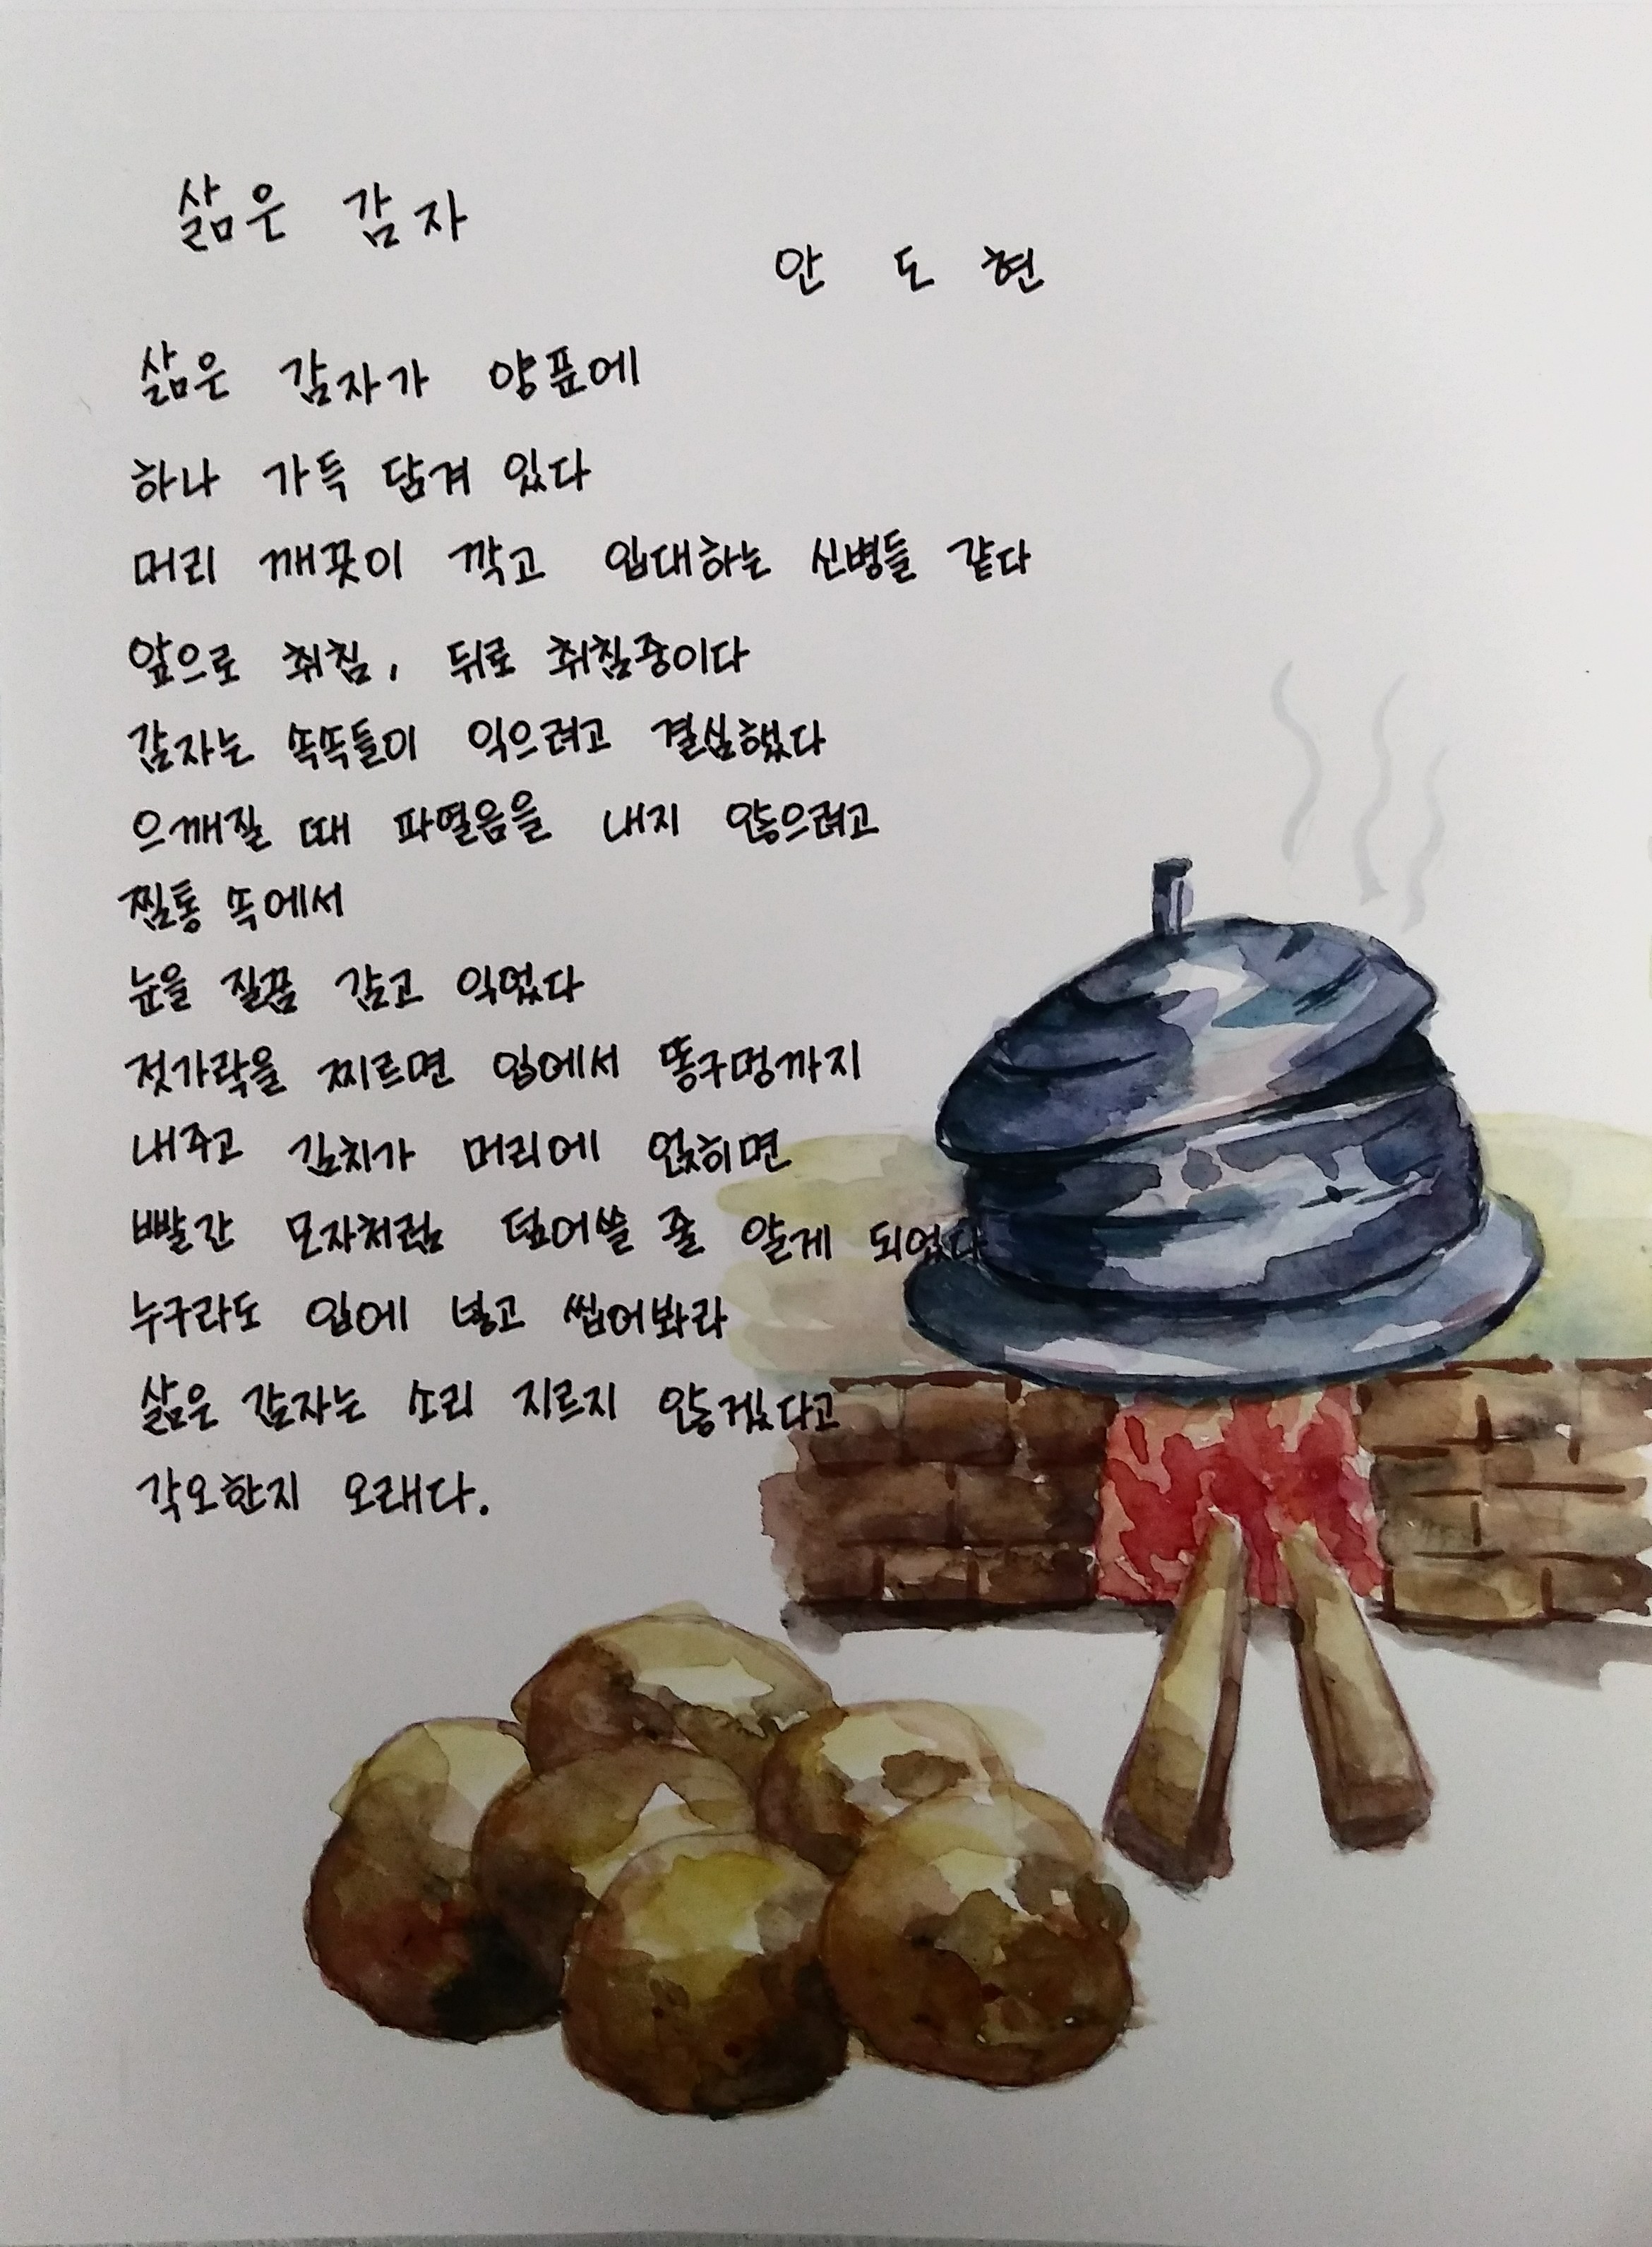 삶은 감자
안 도 현
삶은 감자가 양푼에
하나 가득 담겨 있다
머리 깨끗이 깍고 입대하는 신병들 같다
앞으로 취침, 뒤로 취침중이다
감자는 속속들이 익으려고 결심했다
으깨질 때 파열음을 내지 않으려고
찜통 속에서
눈을 질끔 감고 익었다
젓가락을 찌르면 입에서 똥구멍까지
내주고 김치가 머리에 얹히면
빨간 모자처럼 덮어쓸 줄 알게 되었다
누구라도 입에 넣고 씹어봐라
삶은 감자는 소리 지르지 않겠다고
각오한지 오래다.